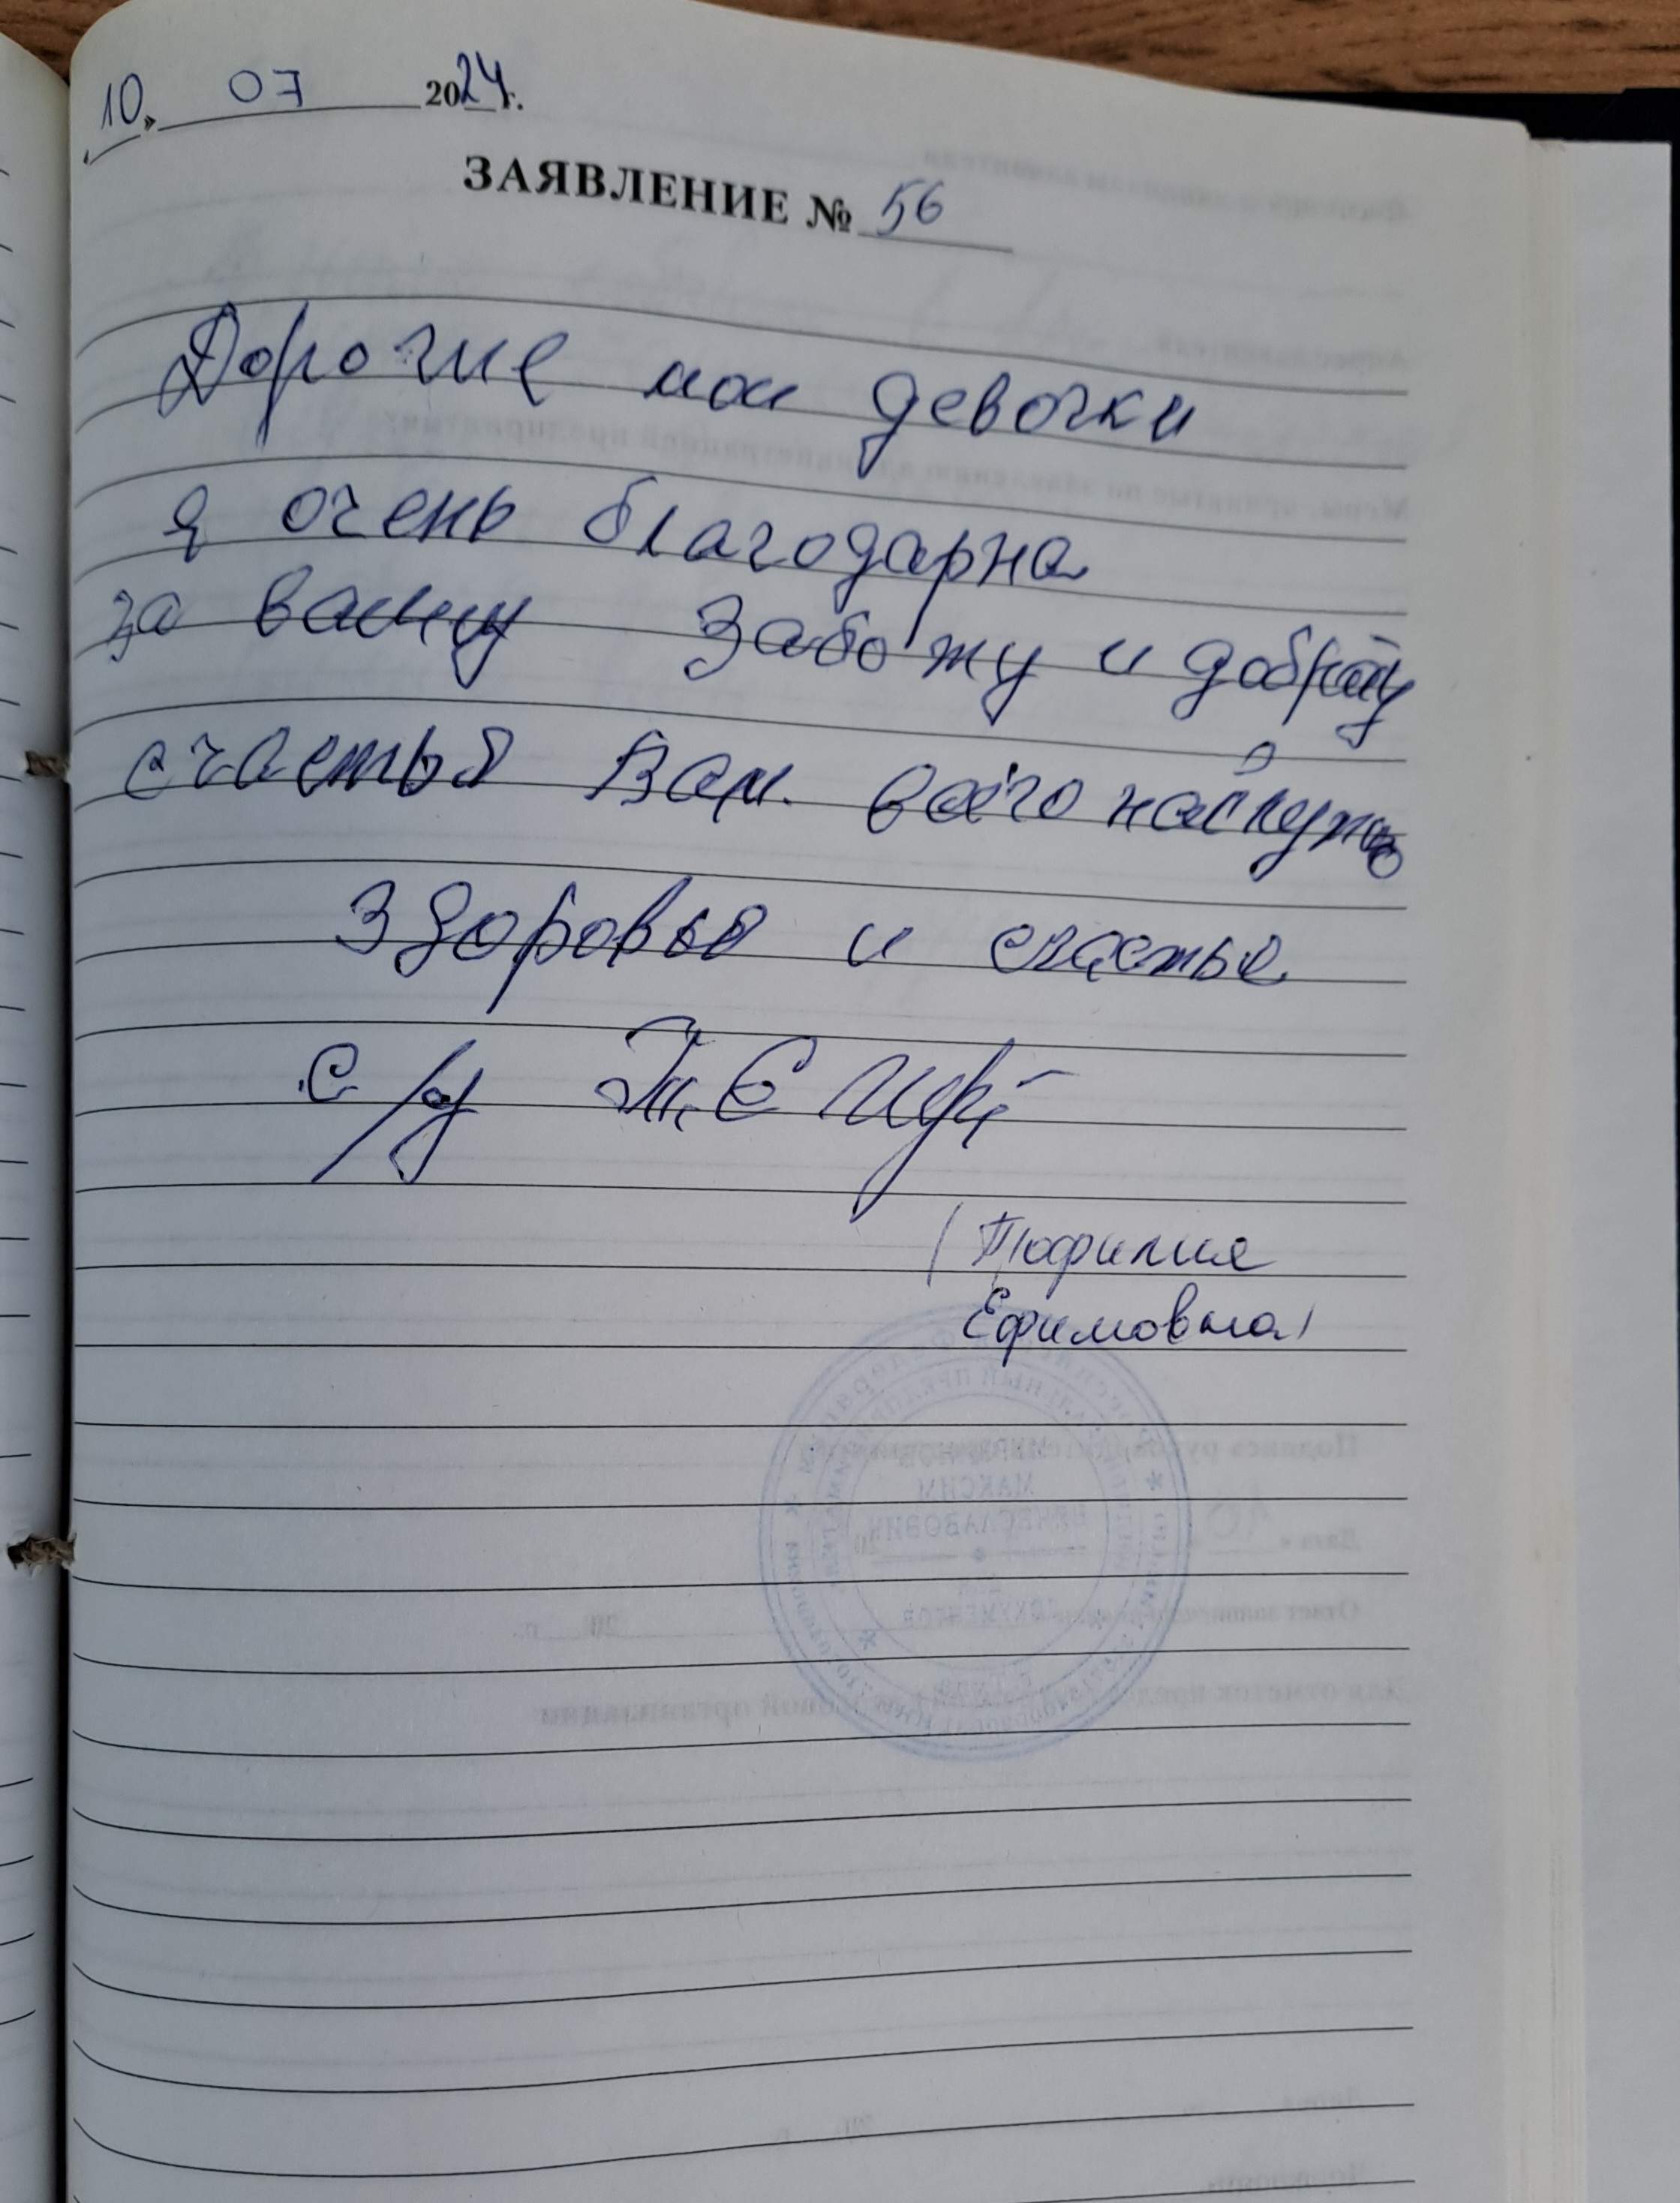 10. 07 2024г.
ЗАЯВЛЕНИЕ № 56
Дорогие мои девочки
я очень благодарна
за вашу заботу и доброту
счастья Вам. всего наилуч
здоровья и счастья
с/у Т.Е
(Теофилия
Ефимовна)
МАКСИМ
ВЯЧЕСЛАВОВИЧ